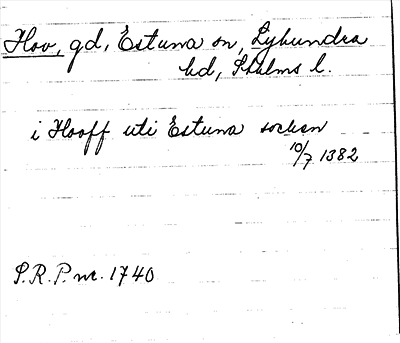 Hov, gd, Estuna sn, Lyhundra
hd, Sthlms l.
i Hooff uti Estuna socken
10/7 1382
S.R.P. nr. 1740